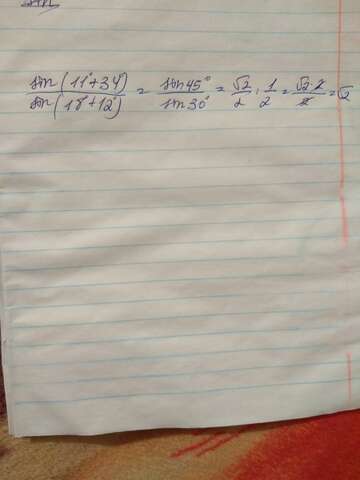 sin(11°+34°)/sin(18°+12°) = sin45°/sin30° = √2/2 : 1/2 = √2·2/2 = √2